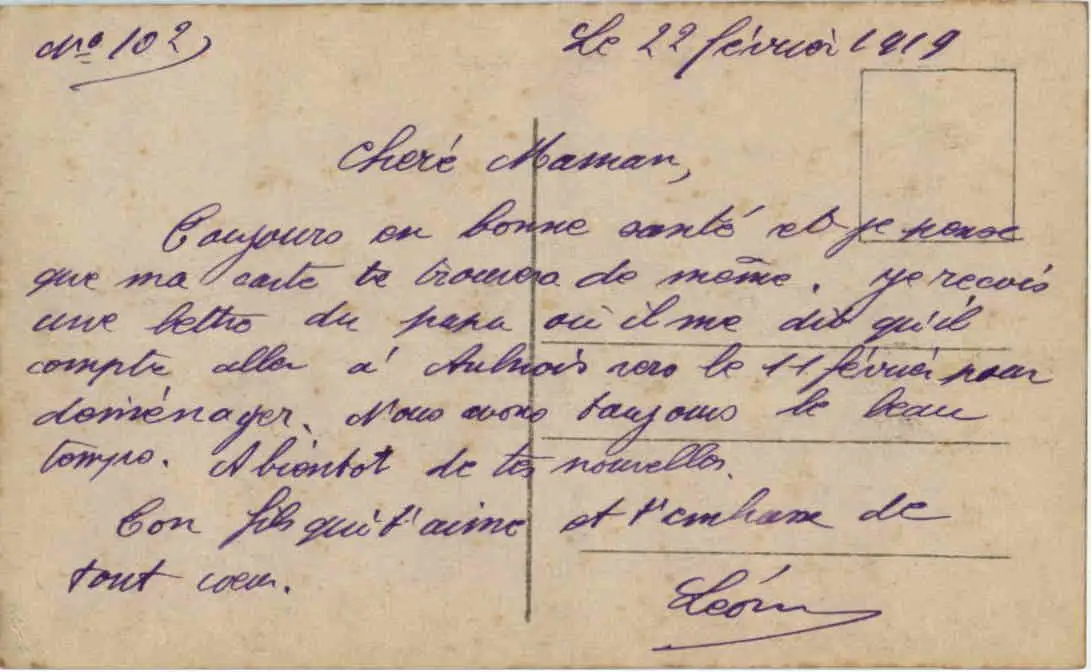 No 102
Le 22 février 1919
Cheré Maman,
Toujours en bonne santé et je pense
que ma carte te trouvera de même. Je recois
une lettre du papa où il me dit qu'il
compte aller à Aulnois vers le 11 février pour
deménager. Nous avons toujours le beau
temps. A bientot de tes nouvelles.
Ton fils qui t'aime et t'embrasse de
tout coeur.
Léon